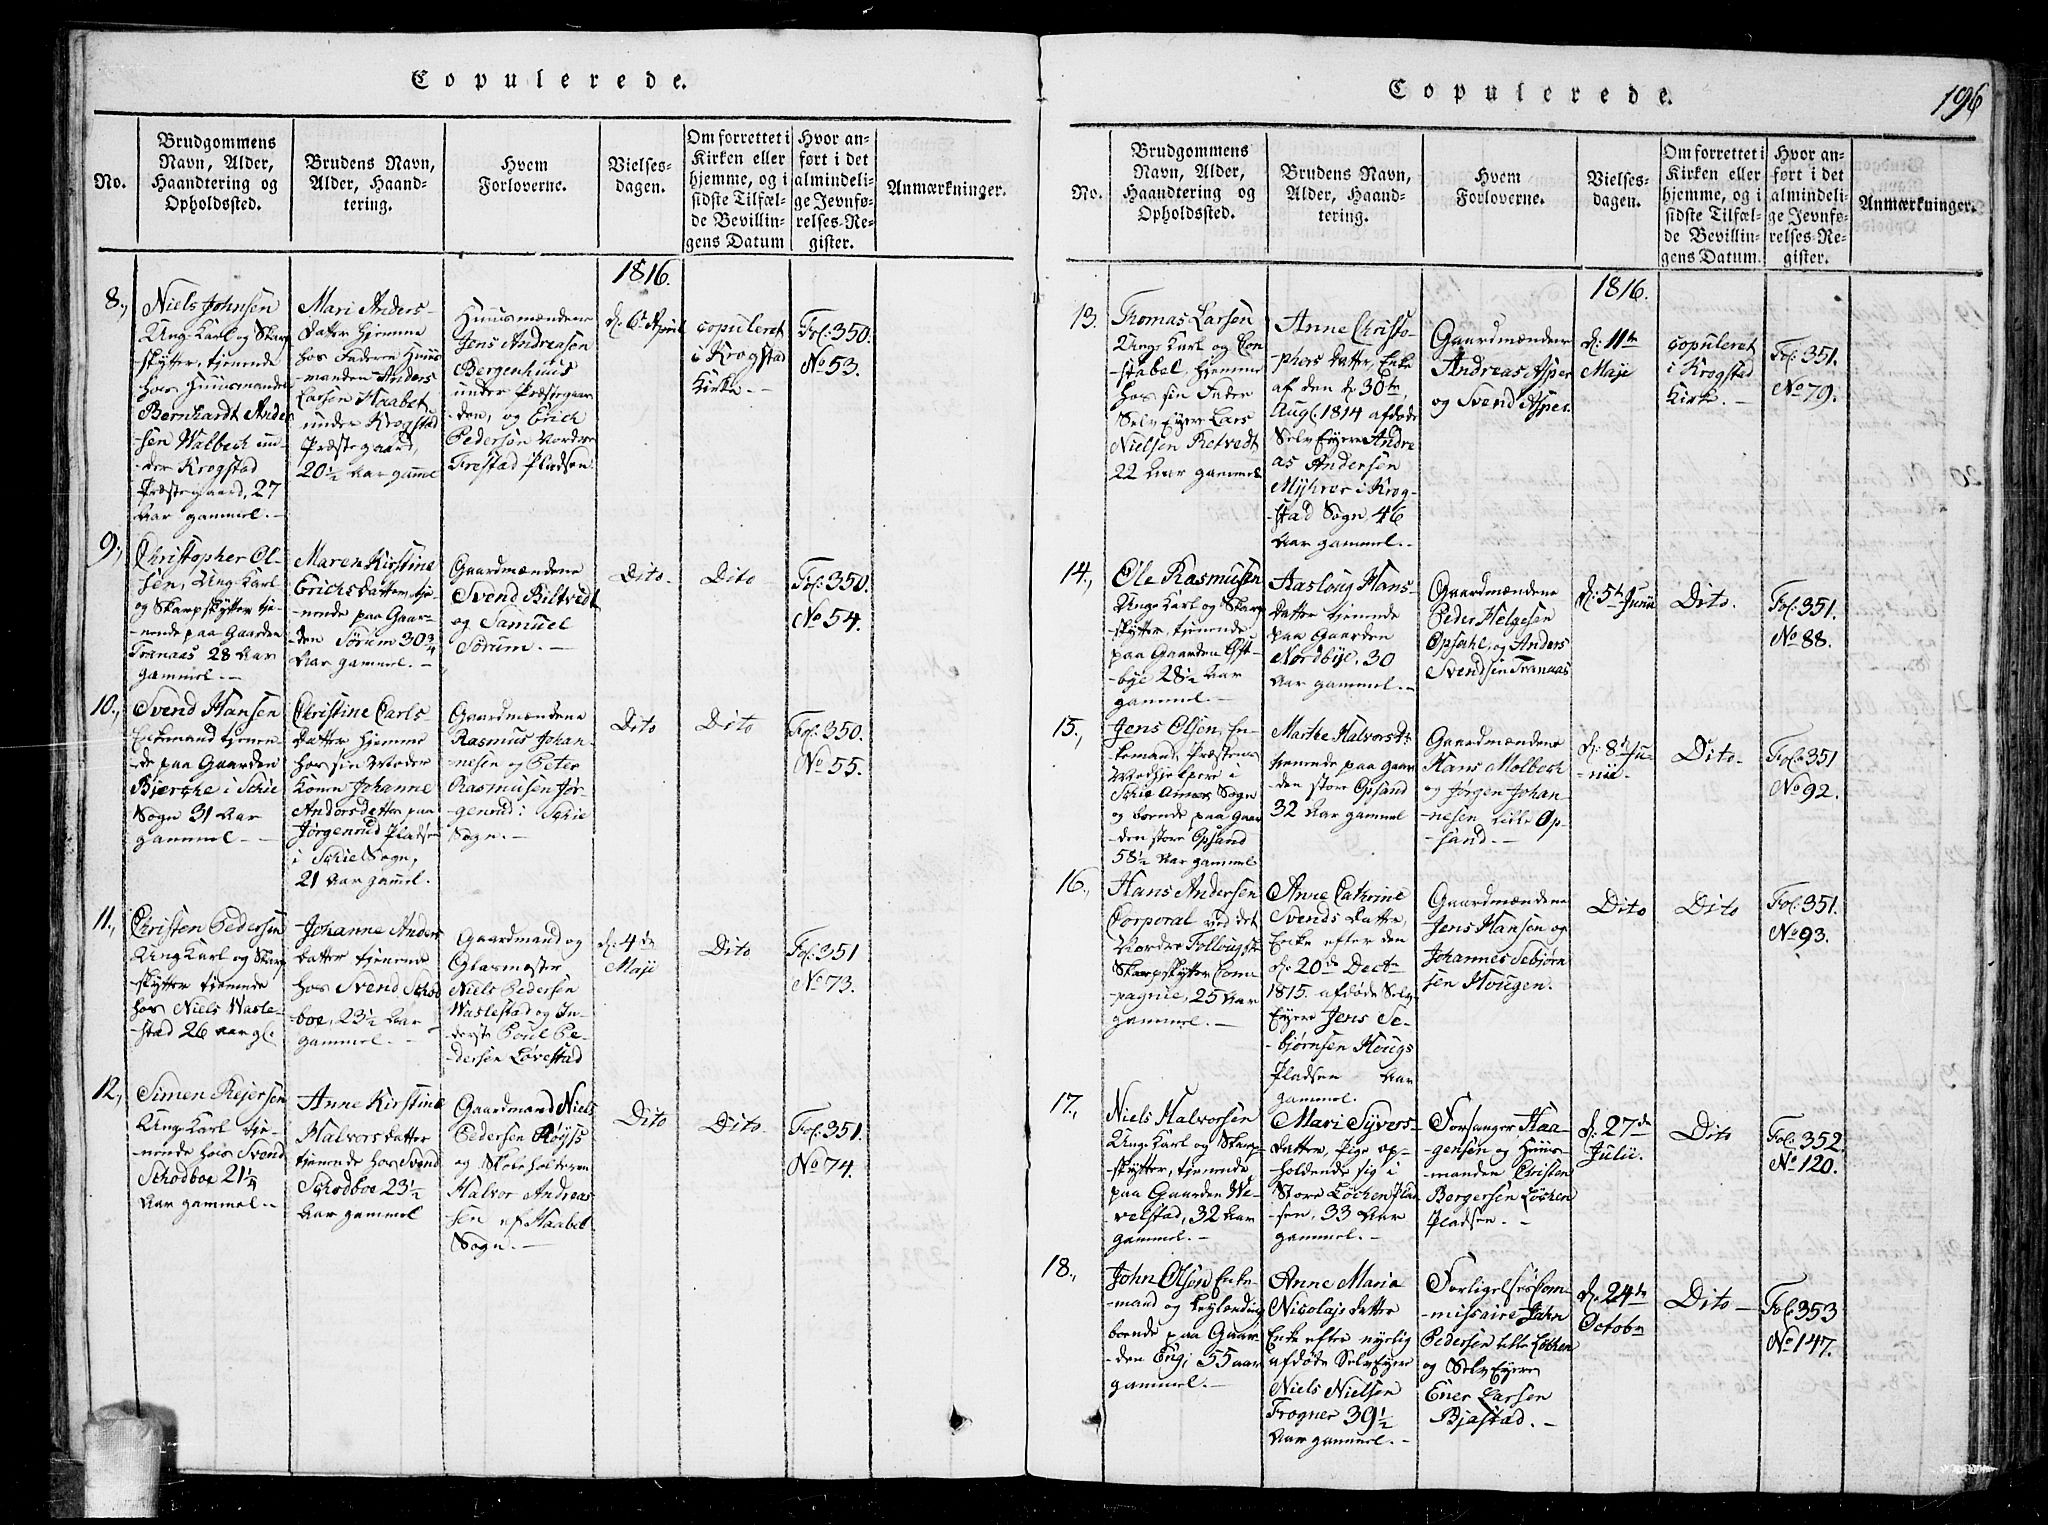 Copulerede.
No.
Brudgommens
Navn, Alder,
Haandtering og
Opholdssted.
Brudens Navn,
Alder, Haand-
tering.
Hvem
Forloverne.
Vielses-
dagen.
Om forrettet i
Kirken eller
hjemme, og i
sidste Tilfæl-
de Bevillin-
gens Datum
Hvor an-
ført i det
almindeli-
ge Jevnfø-
relses-Re-
gister.
Anmærkninger.
1816.
8.,
Niels Johnsen
Ung Karl og Skarp
skytter, tjenende
hos Huusmanden
Bernhardt Ander
sen Walbech un-
der Krogstad
Præstegaard, 27
Aar gammel.
Mari Anders-
datter hjemme
hos Faderen Huus
manden Anders
Larsen Haabet
under Krogstad
Præstegaard,
20½ Aar gam̅el
Huusmændene
Jens Andreasen
Bergenhuus
under Præstegaar
den, og Erich
Pedersen Nordre
Frestad Pladsen.
d. 6te April
copuleret
i Krogstad
Kirke.
Fol: 350.
No 53.
9.,
Christopher Ol-
sen, Ung Karl
og Skarpskytter tje-
nende paa Gaarden
Tranaas 28 Aar
gammel.
Maren Kirstine
Erichsdatter, tje-
nende paa Gaar-
den Sørum 30¾
Aar gammel.
Gaardmændene
Svend Biltvedt
og Samuel
Sørum.
Dito.
Dito
Fol: 350.
No 54.
10.,
Svend Hansen
Enkemand tjenen-
de paa Gaarden
Bjerche i Schie
Sogn 31 Aar
gammel
Christine Carls-
datter hjemme
hos sin Moder
Konen Johanne
Andersdatter paa
Jørgenrud Pladsen
i Schie Sogn,
21 Aar gam̅el.
Gaardmændene
Rasmus Johan-
nesen og Peter
Rasmusen Jør-
genrud i Schie
Sogn.
Dito
Dito
Fol: 350.
No 55.
11.,
Christen Pedersen
Ung Karl og Skarp
skytter tjenende
hos Niels Wasle-
stad 26 aar gl.
Johanne Anders
datter tjenende
hos Svend Schod
boe, 23½ Aar
gammel.
Gaardmand og
Glasmester
Niels Pedersen
Waslestad og In-
derste Poul Pe-
dersen Løvestad
d. 4de
Maji
Dito
Fol: 351
No 73.
12.,
Simen Rejersen
Ung Karl tje-
nende hos Svend
Schodboe 21¼
Aar gammel.
Anne Kirstine
Halvorsdatter
tjenende hos Svend
Schodboe 23½
Aar gammel
Gaardmand Niels
Pedersen Røyss
og Skoleholderen
Halvor Andreas
sen af Haabel
Sogn.
Dito
Dito.
Fol: 351.
No 74.
Copulerede.
196
No.
Brudgommens
Navn, Alder,
Haandtering og
Opholdssted.
Brudens Navn,
Alder, Haand-
tering.
Hvem
Forloverne.
Vielses-
dagen.
Om forrettet i
Kirken eller
hjemme, og i
sidste Tilfæl-
de Bevillin-
gens Datum.
Hvor an-
ført i det
almindeli-
ge Jevnfø-
relses-Re-
gister.
Anmærkninger.
1816.
13.
Thomas Larsen
Ung Karl og Con
stabel, hjemme
hos sin Fader
Selv Eyer Lars
Nielsen Retvedt
22 Aar gammel
Anne Christo-
phers datter, Enke
af den d. 30te
Aug. 1814 afdøde
Selv Eyer Andre
as Andersen
Myhrer i Krog-
stad Sogn, 46
Aar gammel.
Gaardmændene
Andreas Asper
og Svend Asper.
d. 11te
Maji
copuleret
i Krogstad
Kirk.
Fol: 351.
No 79.
14.,
Ole Rasmusen
Unge Karl og Skarp
skytter, tjenende
paa Gaarden Øst-
bye 28½ Aar
gammel.
Aasloug Hans-
datter tjenende
paa Gaarden
Nordbye. 30
Aar gammel.
Gaardmændene
Peder Helgesen
Opsahl, og Anders
Svendsen Tranaas
d. 5te Junii
Dito.
Fol: 351.
No 88.
15.,
Jens Olsen, En-
kemand, Præstens
Medhjelpere i
Schie Annex Sogn
og boende paa Gaar
den store Opsand
58½ Aar gammel
Marthe Halvorsdr
tjenende paa Gaar
den store Opsand
32 Aar gammel
Gaardmændene
Hans Molbech
og Jørgen Johan-
nesen lille Op-
sand.
d. 8de Ju-
nii.
Dito
Fol: 351
No 92.
16.,
Hans Andersen
Corporal ved det
Nordre Follougske
Skarpskytter Com-
pagnie, 25 Aar
gammel.
Anne Cathrine
Svends Datter,
Enke efter den
d. 20de Decbr
1815. afdøde Selv
Eyer Jens Se-
bjørnsen Hougs
Pladsen Aar
gammel.
Gaardmændene
Jens Hansen og
Johannes Sebjørn
sen Hougen.
Dito
Dito
Fol: 351.
No 93.
17.,
Niels Halvorsen
Ung Karl og Skarp-
skytter, tjenende
paa Gaarden We-
velstad, 32 Aar
gammel.
Mari Syvers-
datter, Pige op-
holdende sig i
Store Løchen Plad
sen, 33 Aar
gammel.
Forsanger Haa-
gensen og Huus-
manden Christen
Bergersen Løchen
Pladsen.
d. 27de
Julii.
Dito
Fol: 352.
No 120.
18.,
John Olsen Enke-
mand og
boende paa Gaar-
den Eng, 55 aar
gammel.
Anne Maria
Nicolajsdatter
Enke efter nyelig
afdøde Selv Eyer
Niels Nielsen
Frogner 39½
Aar gammel.
Forligelses Com-
missaire John
Pedersen lille Løchen
og Selv Eyer
Ener Larsen
Bjastad.
d. 24de
Octobr
Dito
Fol: 353
No 147.